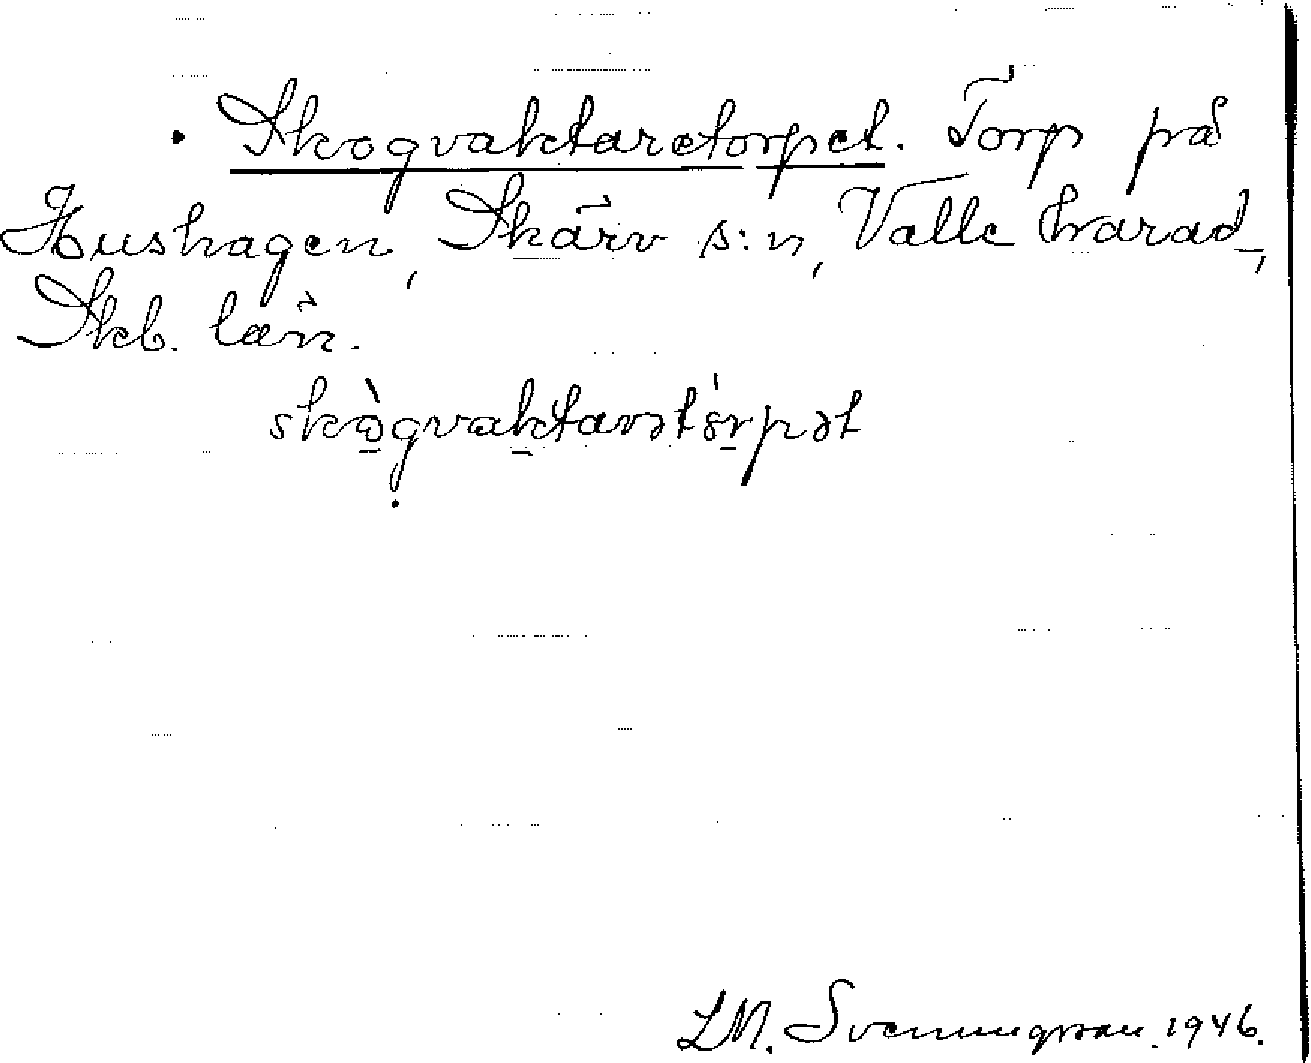 Skogvaktaretorpet. Torp på
Hushagen, Skärv s:n, Valle härad,
Skb. län.
skògvaktarətö̀rpət
LM. Svenungsson. 1946.